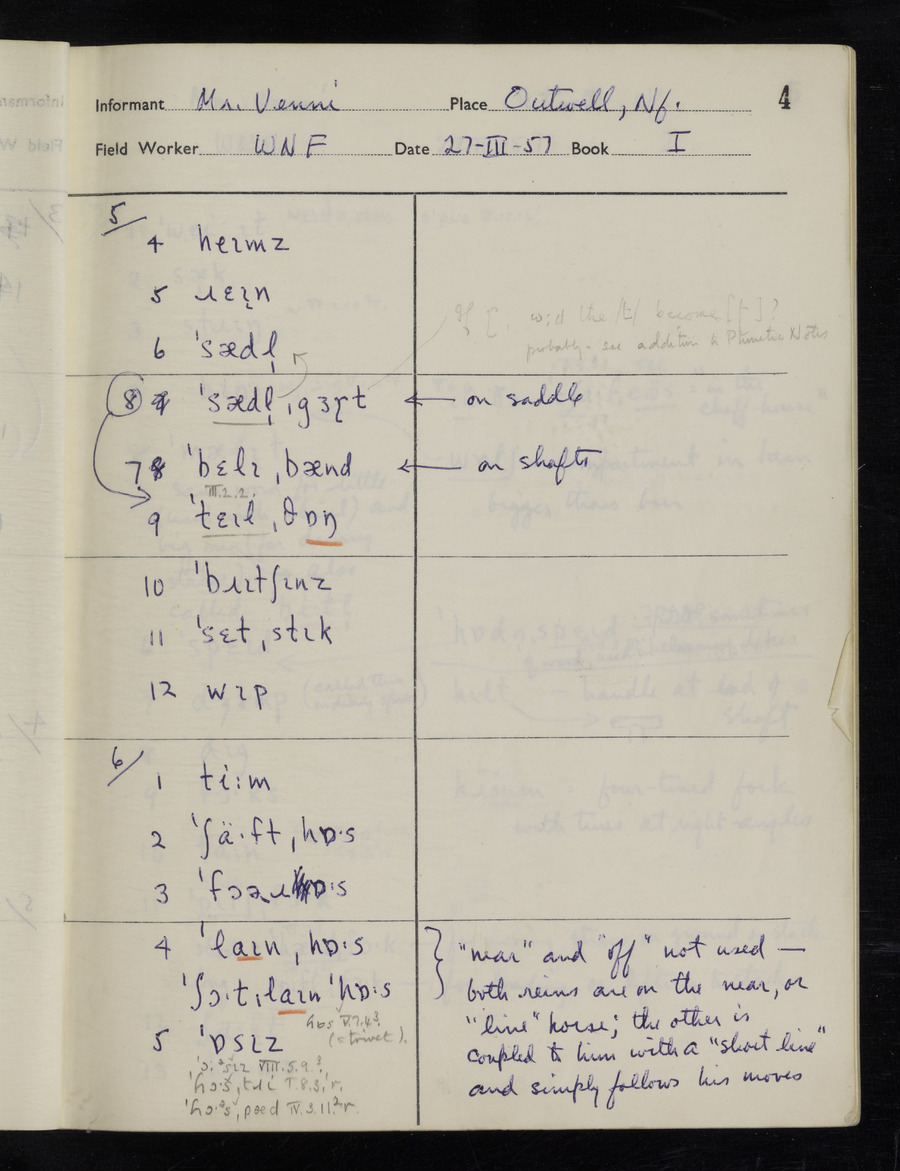 Informant Mr. Venni Place Outwell, Nf. 4
Field Worker WNF Date 27-III-57 Book I
5/
4 heɪmz
5 ɹɛɪn
6 ˈsædl̩
if [, wd the /t/ become [t]?
probably - see addition to Phonetic Notes
8 ˈsædl̩ˌgɜɽt ← on saddle
7 ˈbɛlɪˌbænd ← on shafts
III.2.2.
9 ˈtɛɪlˌθɒŋ
10 ˈbɹɪtʃɪnz
11 ˈsɛtˌstɪk
12 wɪp
6/
1 ti:m
2 ˈʃä·ftˌhɒ·s
3 ˈfɔəɹɒ·s
4 ˈlaɪnˌhɒ·s
ˈʃɔ·tˌlaɪnˈhɒ·s
} "near" and "off" not used —
both reins are on the near, or
"line" horse; the other is
coupled to him with a "short line"
and simply follows his moves
hɒs V.7.4³.
(= trivet).
5 ˈɒsɪz
VIII.5.9.³
T.8.3,r.
pæd IV.3.11.²r.